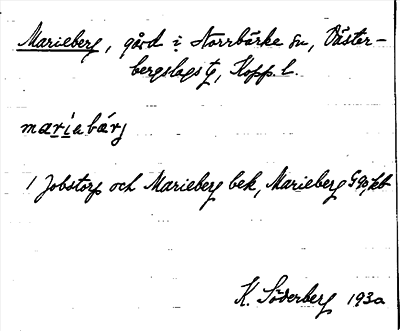 Marieberg, gård i Norrbärke sn, Väster-
bergslags tg, Kopp. l.
maribärj
1 Jobstorp och Marieberg bek, Marieberg Gsg, kb
K. Söderberg 1930